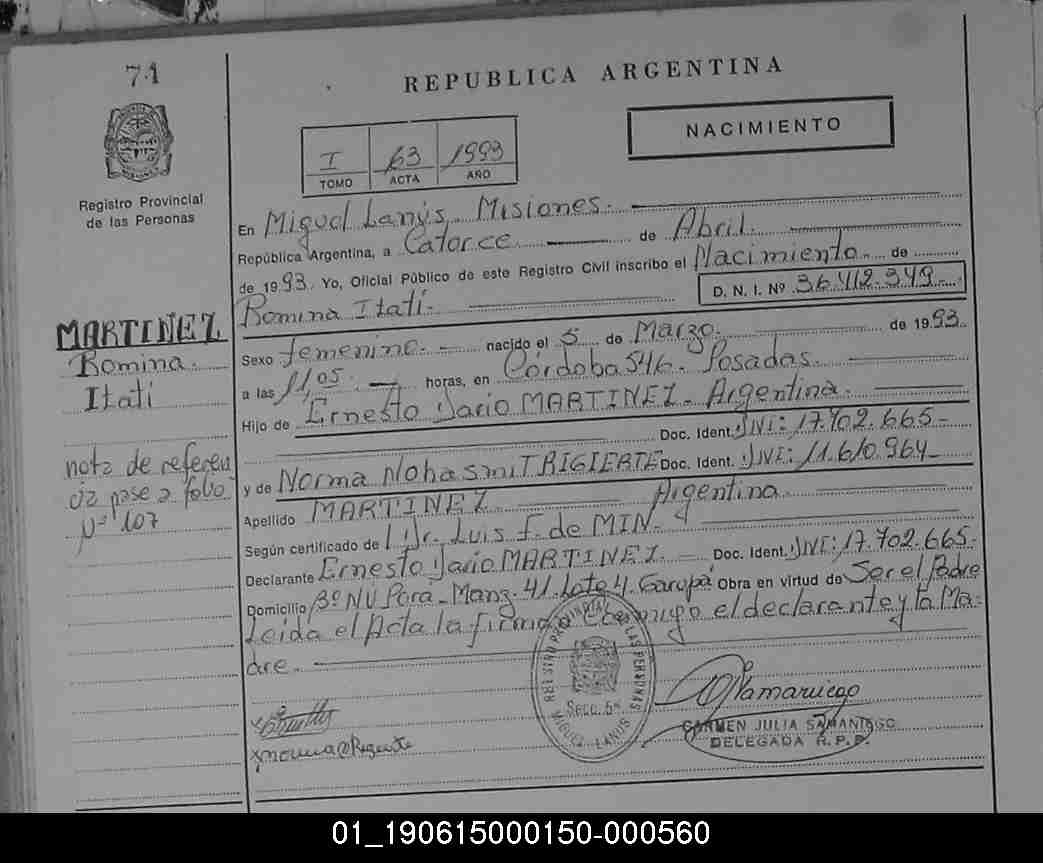 71
REPUBLICA ARGENTINA
NACIMIENTO
I 63 1993
TOMO ACTA AÑO
Registro Provincial
de las Personas
En Miguel Lanús. Misiones.
República Argentina, a Catorce de Abril.
de 1993. Yo, Oficial Público de este Registro Civil inscribo el Nacimiento de
Romina Itatí. D. N. I. Nº 36.412.349
MARTINEZ
Romina
Itatí
Sexo femenino. nacido el 5 de Marzo. de 1993.
a las 11,05. horas, en Córdoba 546. Posadas.
Hijo de Ernesto Dario MARTINEZ. Argentina.
Doc. Ident. DNI: 17.702.665
nota de referen
cia pase a folio
Nº 107
y de Norma Doc. Ident. DNI: 11.610.964
Argentina
Apellido MARTINEZ
Según certificado de Dr. Luis F. de MIN.
Declarante Ernesto Dario MARTINEZ. Doc. Ident. DNI: 17.702.665.
Domicilio Bº Ñu Porá - Manz. 41. Lote 4. Garupá Obra en virtud de Ser el Padre
Leida el Acta la firman conmigo el declarante y la Ma-
dre.
REGISTRO PROVINCIAL DE LAS PERSONAS
Secc. 6ª
MIGUEL LANUS
CARMEN JULIA SAMANIEGO
DELEGADA R.P.P.
01_190615000150-000560